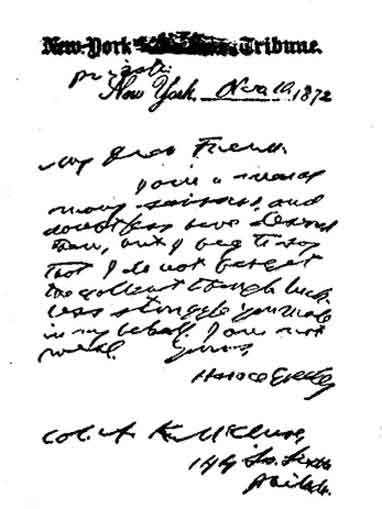 New-York Tribune.
private
New York, Nov. 10, 1872
My Dear Friend:
I am a man of
many sorrows, and
doubtless have deserved
them, but I beg to say
that I do not forget
the gallant though luck-
less struggle you made
in my behalf. I am not
well. Yours,
Horace Greeley
Col. A. K. McClure,
144 So. Sixth
Philada.